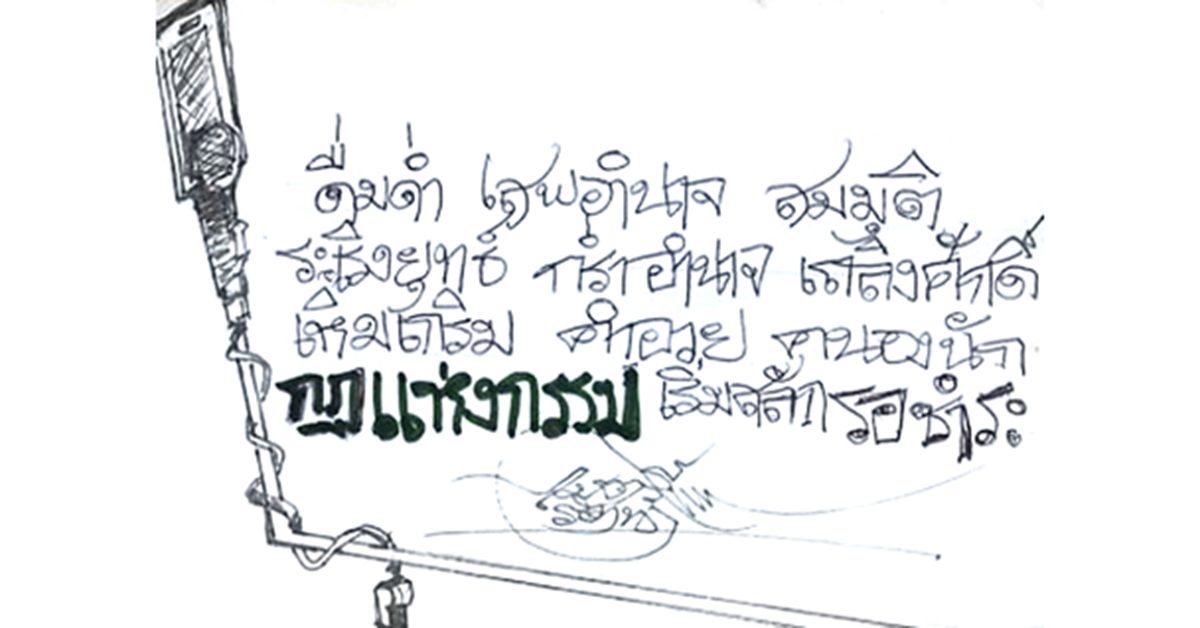 ดื่มด่ำ เสพอำนาจ สมมุติ
ระเริงยุทธ์ กรำอำนาจ เถลิงศักดิ์
เหิมเกริม คำอวย คนองนัก
กฎแห่งกรรม เริ่มสลัก รอชำระ